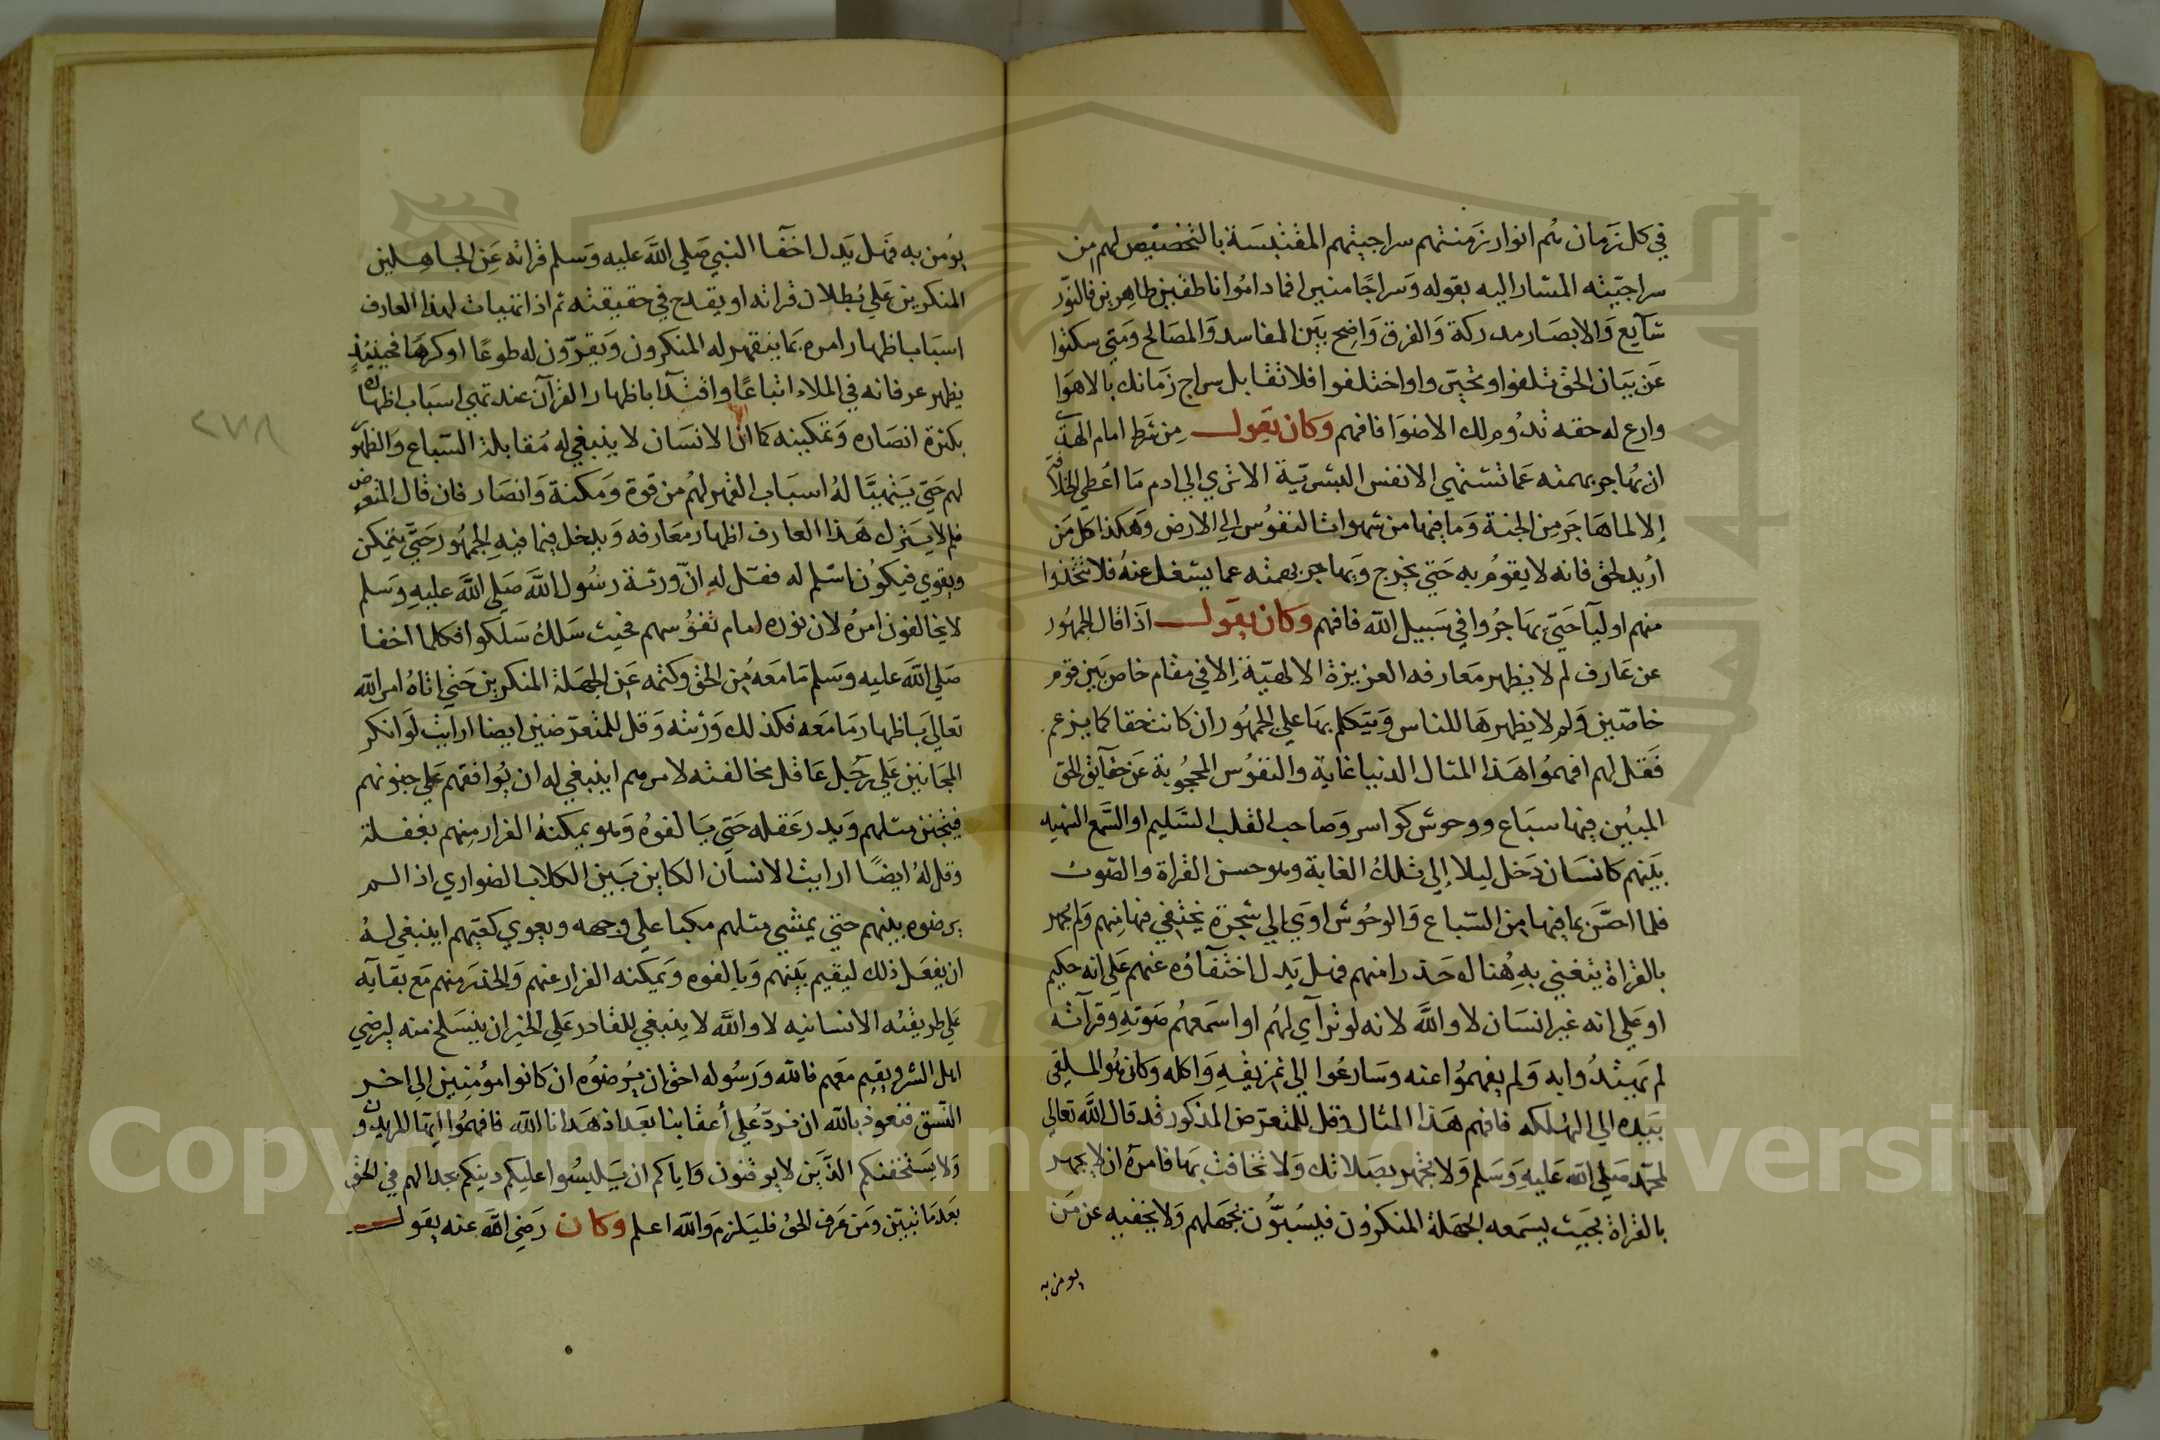 في كل زمان ثم انوار زمنتهم سراجيتهم المقتبسة بالتخصيص لهم من
سراجيته المشار اليه بقوله وسراجا منيرا فما داموا ناطقين ظاهرين فالنور
شايع والابصار مدركة والفرق واضح بين المفاسد والمصالح ومتي سكتوا
عن بيان الحق تلفوا وتحيروا واختلفوا فلا تقابل سراج زمانك بالاهوا
وارع له حقه تدوم لك الاضوا فافهم وكان يقول من شرط امام الهدى
ان يهاجر بهمته عما تشتهي الانفس البشرية الا تري الي ادم ما اعطي الخلافة
إلا لما هاجر من الجنة وما فيها من شهوات النفوس الي الارض وهكذا كل من
أريد لحق فانه لا يقوم به حتي يخرج ويهاجر بهمته عما يشغل عنه فلا تتخذوا
منهم اوليآ حتي يهاجروا في سبيل الله فافهم وكان يقول اذا قال الجمهور
عن عارف لم لا يظهر معارفه العزيزة الالهية إلا في مقام خاص بين قوم
خاصين ولم لا يظهرها للناس ويتكلم بها علي الجمهور ان كانت حقا كما يزعم
فقل لهم افهموا هذا المثال الدنيا غابة والنفوس المحجوبة عن حقآيق الحق
المبين فيها سباع ووحوش كواسر وصاحب القلب السليم او السمع الشهيد
بينهم كانسان دخل ليلا إلي تلك الغابة وهو حسن القراة والصوت
فلما احس بما فيها من السباع والوحوش اوي الي شجرة يختفي فيها منهم ولم يجهر
بالقراة يتغني به هنالك حذرا منهم فهل يدل اختفآؤه عنهم علي انه حكيم
او علي انه غير انسان لا والله لانه لو ترآي لهم او اسمعهم صوته وقرآته
لم يهتدوا به ولم يفهموا عنه وسارعوا الي تمزيقه واكله وكان هو الملقي
بيده الي الهلكه فافهم هذا المثال وقل للمتعرض المذكور قد قال الله تعالي
لمحمد صلي الله عليه وسلم ولا تجهر بصلاتك ولا تخافت بها فامره ان لا يجهر
بالقراة بحيث يسمعه الجهلة المنكرون فيسبون بجهلهم ولا يخفيه عن من
يومن به
يؤمن به فهل يدل اخفآ النبي صلي الله عليه وسلم قراته عن الجاهلين
المنكرين علي بطلان قراته او يقدح في حقيقته ثم اذا تهيات لهذا العارف
اسباب اظهار امره بما ينقهر له المنكرون ويقرون له طوعا او كرها فحينيذ
يظهر عرفانه في الملاء اتباعا واقتدآ باظهار القرآن عند تهي اسباب اظهاره
بكثرة انصاره وتمكينه كما ان الانسان لا ينبغي له مقابلة السباع والظهور
لهم حتي يتهيا له اسباب القهر لهم من قوة ومكنة وانصار فان قال المتعرض
فلم لا يترك هذا العارف اظهار معارفه ويدخل فيما فيه الجمهور حتي يتمكن
ويقوي فيكون اسلم له فقل له ان ورثة رسول الله صلي الله عليه وسلم
لا يخالفون امره لان نوره امام نفوسهم فحيث سلك سلكوا فكلما اخفا
صلي الله عليه وسلم ما معه من الحق وكتمه عن الجهلة المنكرين حتي اتاه امر الله
تعالي باظهار ما معه فكذلك ورثته وقل للمتعرضين ايضا ارايت لو انكر
المجانين علي رجل عاقل مخالفته لامرهم اينبغي له ان يوافقهم علي جنونهم
فيتجنن مثلهم ويدر عقله حتي يالفوه وهو يمكنه الفرار منهم بغفلة
وقل له ايضا ارايت الانسان الكاين بين الكلاب الضواري اذا لم
يرضوه بينهم حتي يمشي مثلهم مكبا علي وجهه ويعوي كعيهم اينبغي له
ان يفعل ذلك ليقيم بينهم ويالفوه ويمكنه الفرار عنهم والحذر منهم مع بقآيه
علي طريقته الانسانيه لا والله لا ينبغي للقادر علي الخير ان ينسلخ منه ليرضي
اهل الشر ويقيم معهم فالله ورسوله احق ان يرضوه ان كانوا مؤمنين الي اخر
النسق فنعوذ بالله ان نرد علي أعقابنا بعد اذ هدانا الله فافهموا ايها المريدون
ولا يستخفنكم الذين لا يوقنون واياكم ان يلبسوا عليكم دينكم بجدالهم في الحق
بعد ما تبين ومن عرف الحق فليلزم والله اعلم وكان رضي الله عنه يقول
٢٧٨
Copyright © King Saud University